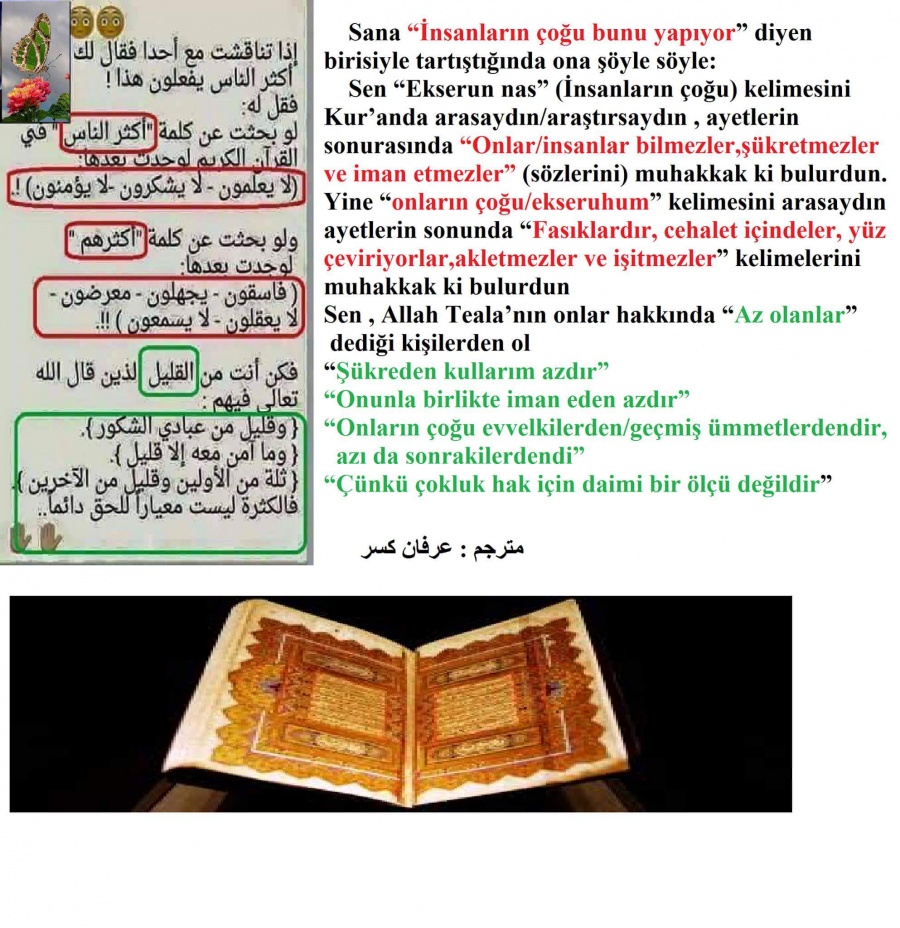 إذا تناقشت مع أحدا فقال لك
أكثر الناس يفعلون هذا !
فقل له:
لو بحثت عن كلمة "أكثر الناس" في
القرآن الكريم لوجدت بعدها:
(لا يعلمون - لا يشكرون -لا يؤمنون) !.
ولو بحثت عن كلمة "أكثرهم"
لوجدت بعدها:
( فاسقون - يجهلون - معرضون -
لا يعقلون - لا يسمعون ) !!.
فكن أنت من القليل لذين قال الله
تعالى فيهم :
{ وقليل من عبادي الشكور }.
{ وما آمن معه إلا قليل }.
{ ثلة من الأولين وقليل من الآخرين }.
فالكثرة ليست معياراً للحق دائماً..
Sana “İnsanların çoğu bunu yapıyor” diyen
birisiyle tartıştığında ona şöyle söyle:
Sen “Ekserun nas” (İnsanların çoğu) kelimesini
Kur’anda arasaydın/araştırsaydın , ayetlerin
sonurasında “Onlar/insanlar bilmezler,şükretmezler
ve iman etmezler” (sözlerini) muhakkak ki bulurdun.
Yine “onların çoğu/ekseruhum” kelimesini arasaydın
ayetlerin sonunda “Fasıklardır, cehalet içindeler, yüz
çeviriyorlar,akletmezler ve işitmezler” kelimelerini
muhakkak ki bulurdun
Sen , Allah Teala’nın onlar hakkında “Az olanlar”
dediği kişilerden ol
“Şükreden kullarım azdır”
“Onunla birlikte iman eden azdır”
“Onların çoğu evvelkilerden/geçmiş ümmetlerdendir,
azı da sonrakilerdendi”
“Çünkü çokluk hak için daimi bir ölçü değildir”
مترجم : عرفان كسر